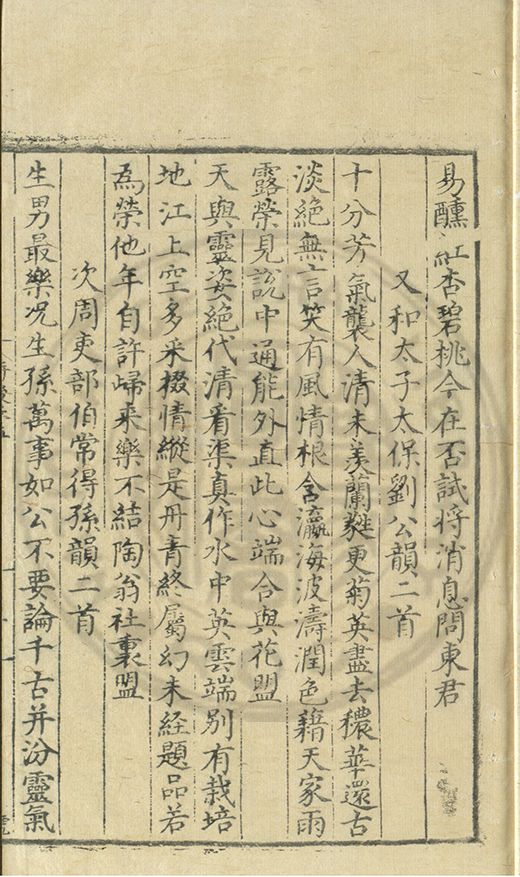 易醺紅杏碧桃今在否試将消息問東君
又和太子太保劉公韻二首
十分芳氣襲人清未羡蘭蕤更菊英盡去穠華還古
淡絶無言笑有風情根含瀛海波濤潤色藉天家雨
露榮見說中通能外直此心端合與花盟
天與靈姿絶代清看渠真作水中英雲端別有栽培
地江上空多采掇情縱是丹青終屬幻未経題品若
為榮他年自許歸来樂不結陶翁社裏盟
次周吏部伯常得孫韻二首
生男最樂况生孫萬事如公不要論千古并汾靈氣